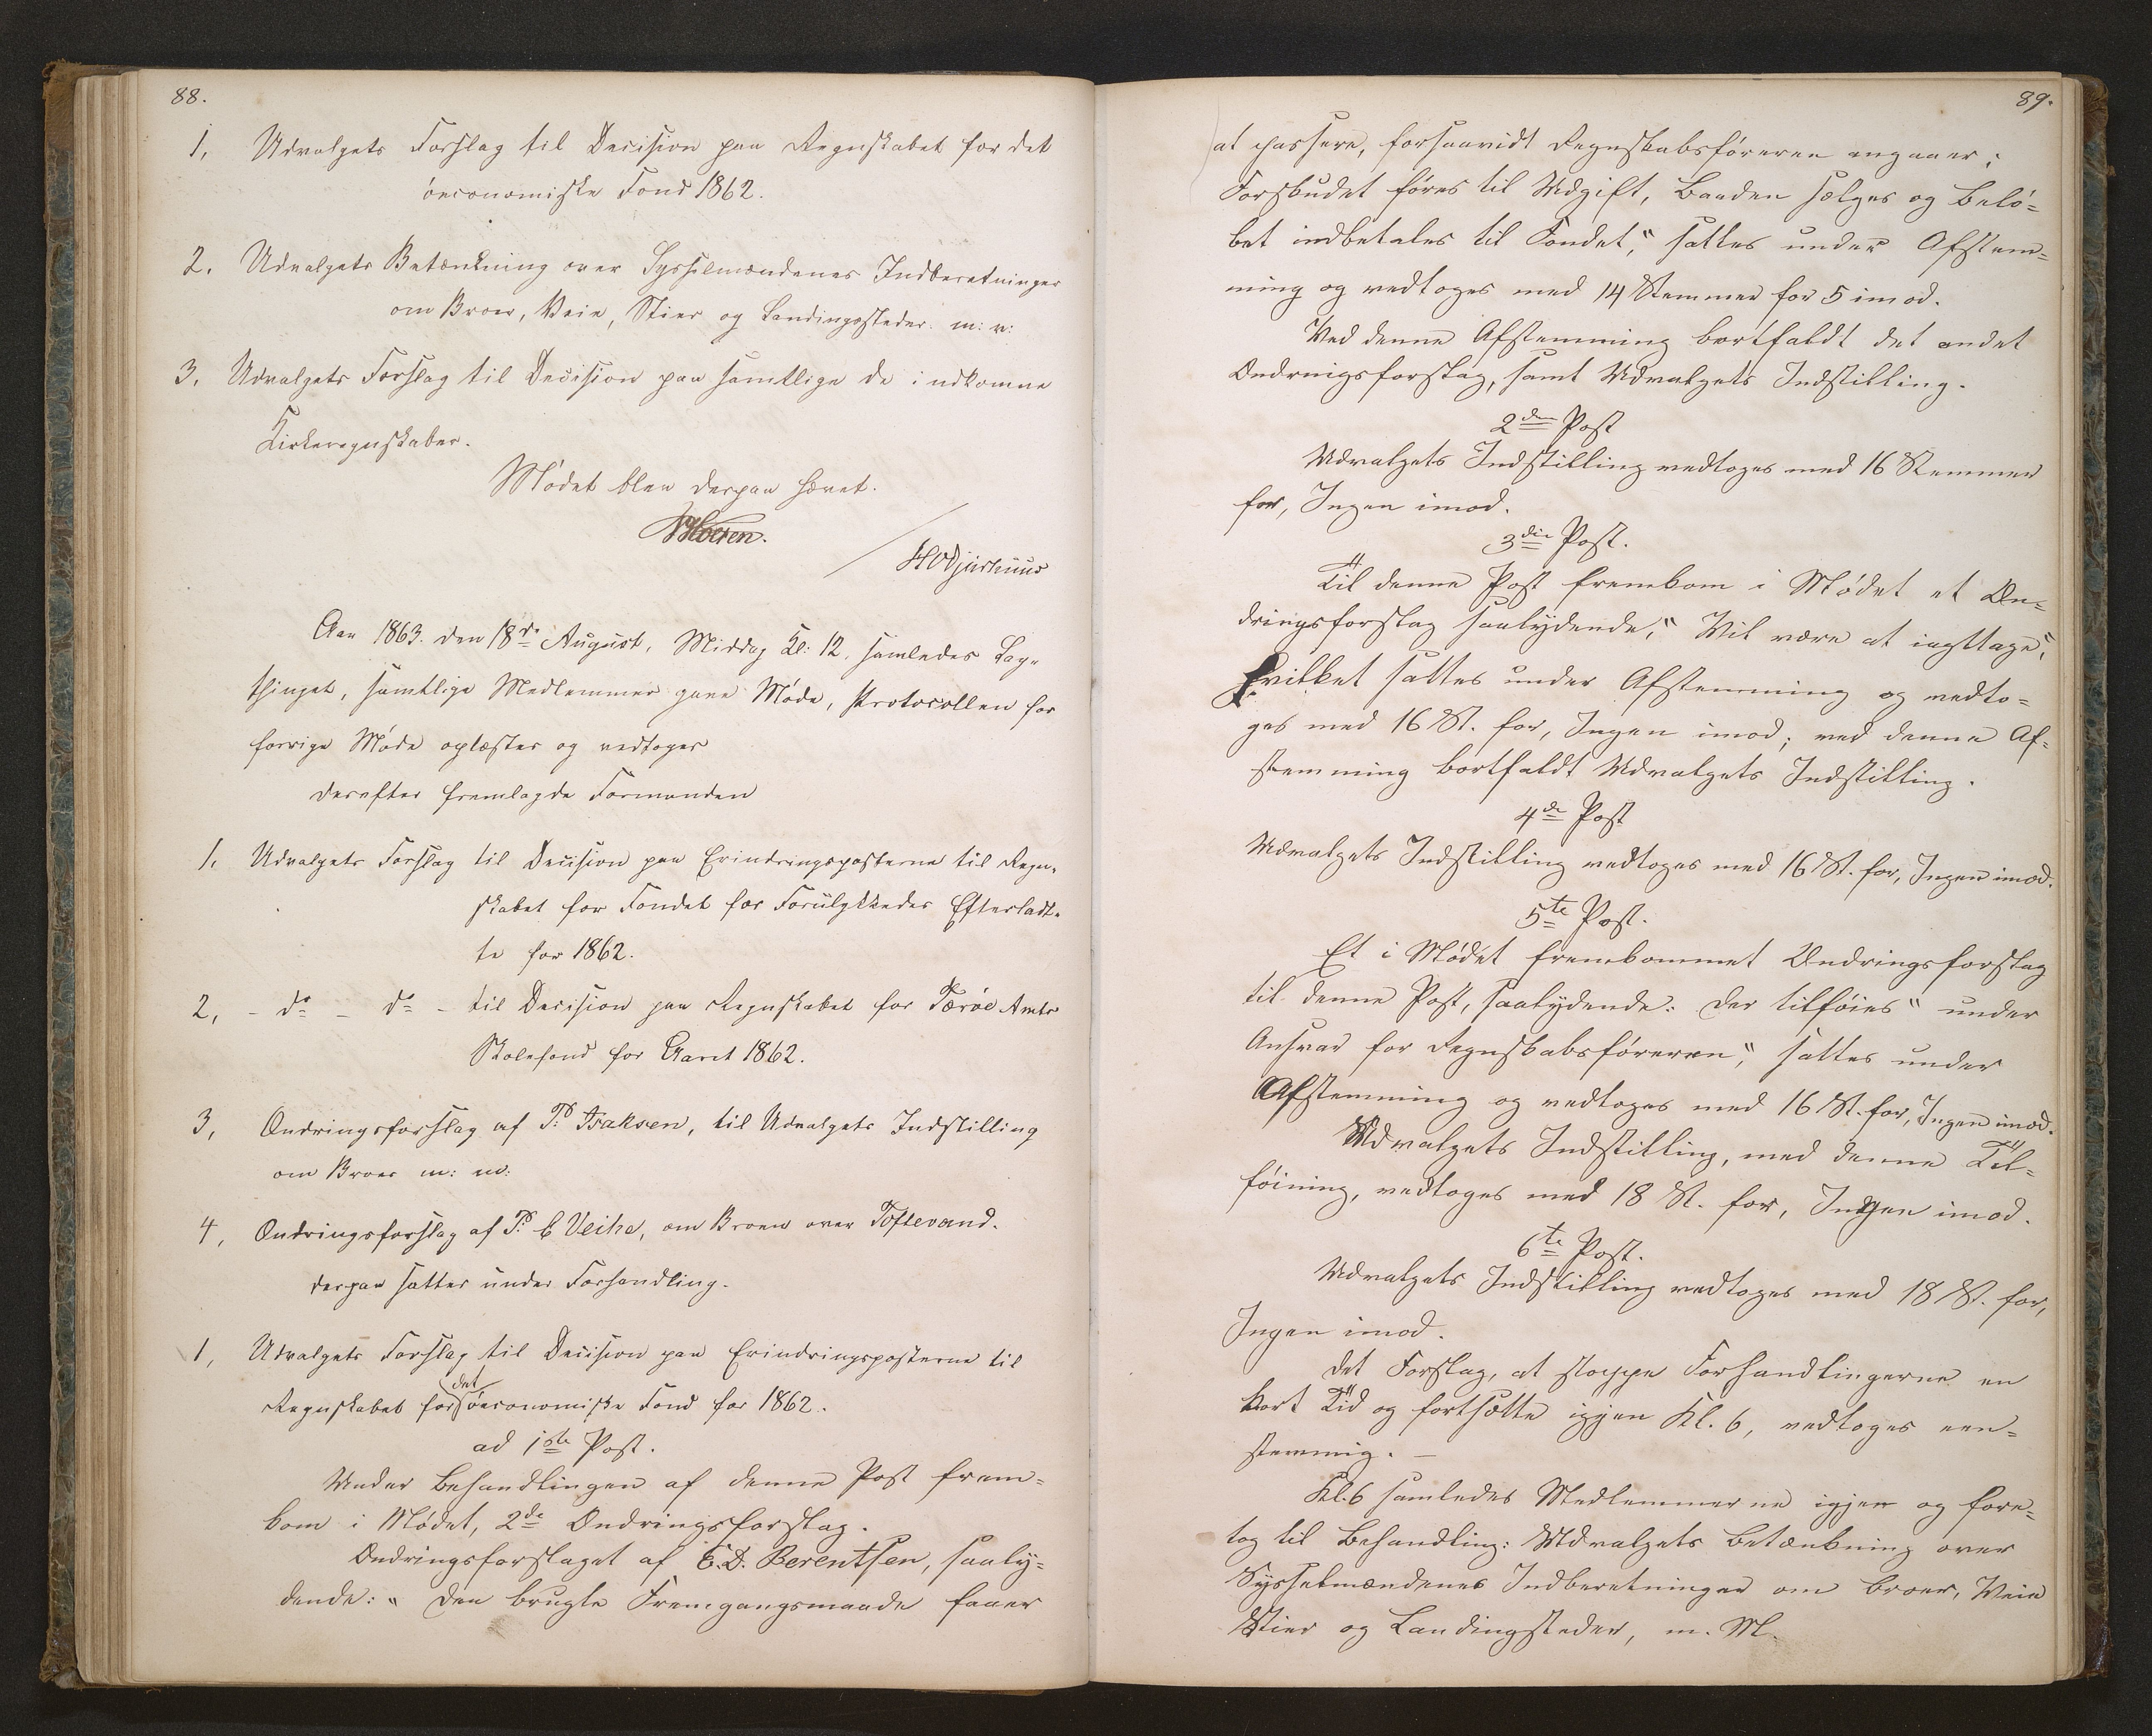 88.
1, Udvalgets Forslag til Decision paa Regnskabet for det
öeconomiske Fond 1862.
2. Udvalgets Betænkning over Sysselmændenes Indberetninger
om Broer, Veie, Stier og Landingssteder. m: v:
3, Udvalgets Forslag til Decision paa samtlige de indkomne
Kirkeregnskaber.
Mödet blev derpaa hævet.
HODjurhuus
Aar 1863. den 18de August, Middag Kl: 12, samledes Lag-
thinget, samtlige Medlemmer gave Möde, Protocollen for
forrige Möde oplæstes og vedtoges
Derefter fremlagde Formanden
1, Udvalgets Forslag til Decision paa Erindringsposterne til Regn-
skabet for Fondet for Forulykkedes Efterladt-
te for 1862.
2, - do - do - til Decision paa Regnskabet for Færöe Amts
Skolefond for Aaret 1862.
3, Ændringsforslag af P: Isaksen, til Udvalgets Indstilling
om Broer m: m:
4, Ændringsforslag af P: C Veihe, om Broen over Toftevand.
derpaa sattes under Forhandling.
1, Udvalgets Forslag til Decision paa Erindringsposterne til
Regnskabet for det öeconomiske Fond for 1862.
ad 1ste Post.
Under Behandlingen af denne Post frem-
kom i Mödet, 2de Ændringsforslag.
Ændringsforslaget af E. D. Berentsen, saaly-
dende: " Den brugte Fremgangsmaade faaer
89.
at passere, forsaavidt Regnskabsföreren angaaer;
Forskudet föres til Udgift, Baaden sælges og Belö-
bet indbetales til Fondet," sattes under Afstem-
ning og vedtoges med 14 Stemmer for 5 imod.
Ved denne Afstemning bortfaldt det andet
Ændringsforslag, samt Udvalgets Indstilling.
2den Post
Udvalgets Indstilling vedtoges med 16 Stemmer
for, Ingen imod.
3die Post.
Til denne Post fremkom i Mödet et Æn-
dringsforslag saalydende, " Vil være at iagttage",
hvilket sattes under Afstemning og vedto-
ges med 16 St. for, Ingen imod; ved denne Af-
stemning bortfaldt Udvalgets Indstilling.
4de Post
Udvalgets Indstilling vedtoges med 16 St. for, Ingen imod.
5te Post.
Et i Mödet fremkommet Ændringsforslag
til denne Post, saalydende: Der tilföies " under
Ansvar for Regnskabsföreren", sattes under
Afstemning og vedtoges med 16 St. for, Ingen imod.
Udvalgets Indstilling, med denne Til-
föining, vedtoges med 18 St. for, Ingen imod.
6te Post.
Udvalgets Indstilling vedtoges med 18 St. for,
Ingen imod.
Det Forslag, at stoppe Forhandlingerne en
kort Tid og fortsætte igjen Kl. 6, vedtoges een-
stemmig. —
Kl. 6 samledes Medlemmerne igjen og fore-
tog til Behandling: Udvalgets Betænkning over
Sysselmændenes Indberetninger om Broer, Veie
Stier og Landingsteder, m. M.